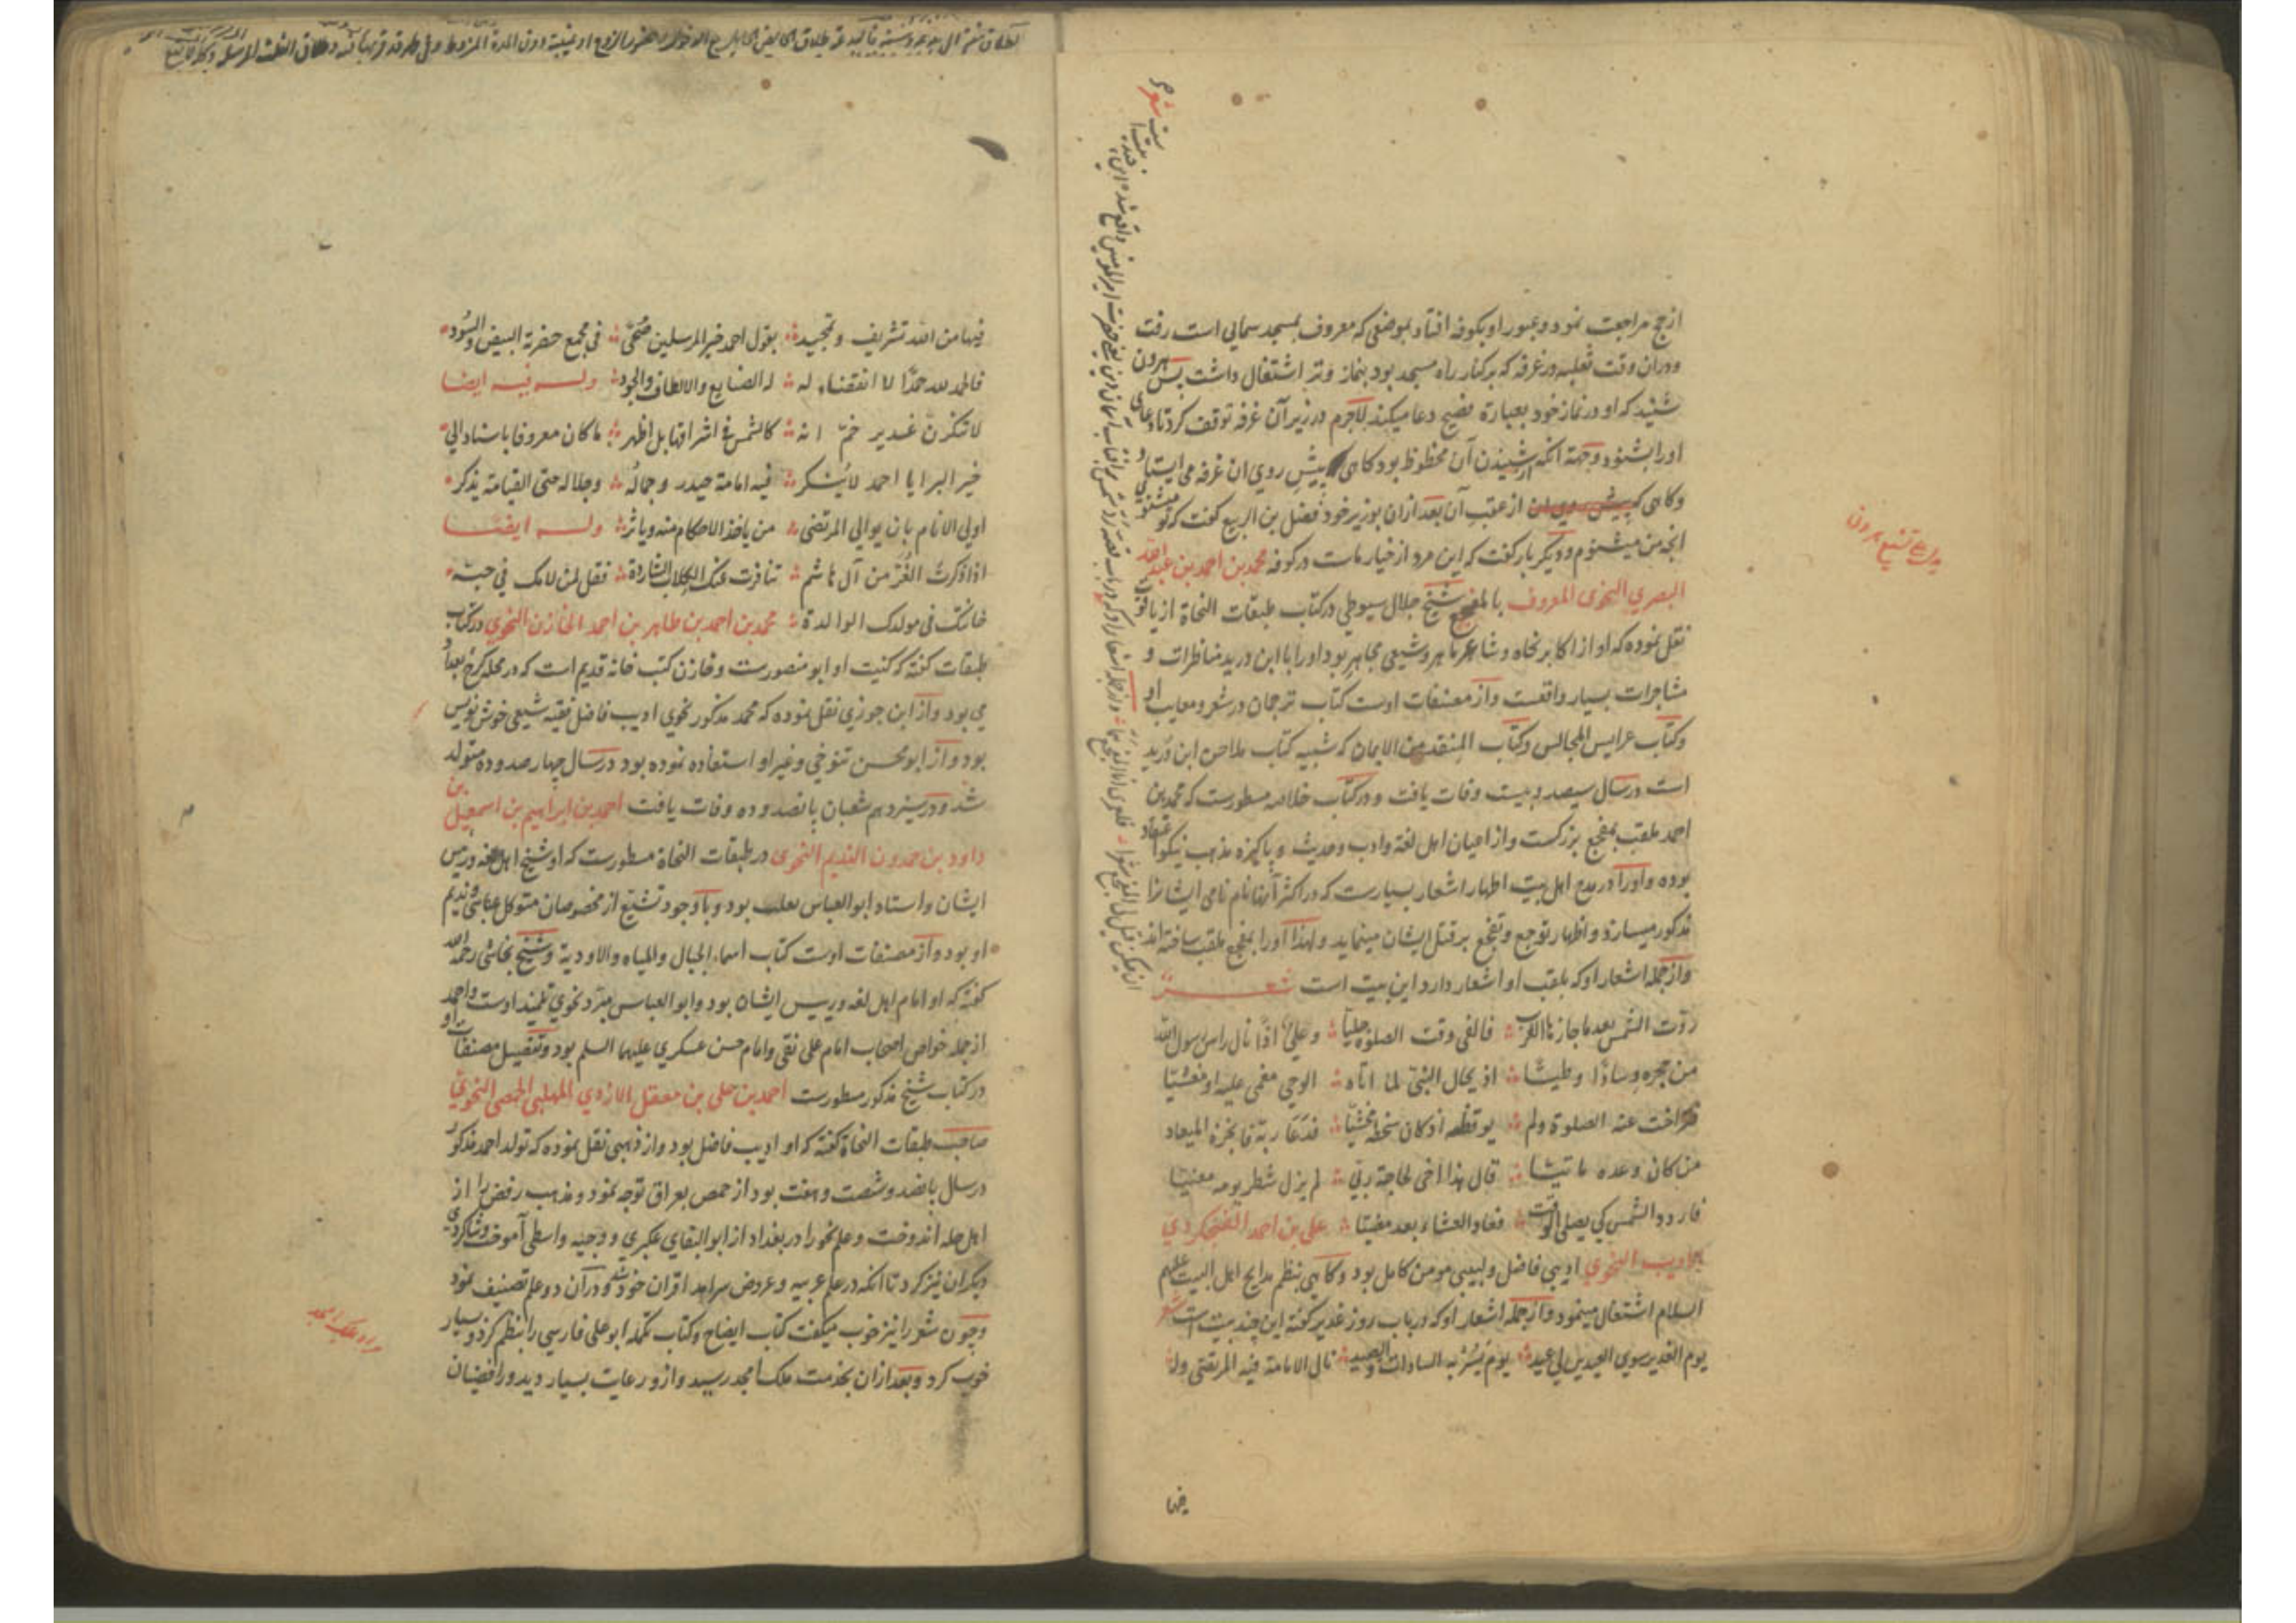 از حج مراجعت نمود و عبور او بکوفه افتاد بموضعی که معروف بمسجد سمالی است رفت
ودران وقت ثعلبه در غرفه که برکنار راه مسجد بود بنماز وتر اشتغال داشت پس هرون
شنید که او در نماز خود بعبارة فصیح دعا میکند لاجرم در زیر آن غرفه توقف کرد تا دعای
اورا بشنود وجهة انکه از شنیدن آن محظوظ بود کاهی پیش روی ان غرفه می ایستاد
وکاهی از عقب آن بعد ازان بوزیر خود فضل بن الربیع کفت که تو میشنوی
انچه من میشنوم و دیکر بار کفت که این مرد از خیار ماست در کوفه محمد بن احمد بن عبدالله
البصری النحوی المعروف بالمفجع شیخ جلال سیوطی در کتاب طبقات النحاة از یاقوت
نقل نموده که او از اکابر نحاه و شاعر ماهر و شیعی مجاهر بود اورا با ابن درید مناظرات و
مشاجرات بسیار واقعست واز مصنفات اوست کتاب ترجمان در شعر و معایب او
وکتاب عرایس المجالس وکتاب المنقد من الایمان که شبیه کتاب ملاحن ابن درید
است در سال سیصد و بیست وفات یافت و در کتاب خلاصه مسطورست که محمد بن
احمد ملقب بمفجع بزرکست واز اعیان اهل لغة وادب وحدیث و پاکیزه مذهب نیکو اعتقاد
بوده و اورا در مدح اهل بیت اطهار اشعار بسیارست که در اکثر آنها نام نامی ایشانرا
مذکور میسازد و اظهار توجع و تفجع بر قتل ایشان مینماید ولهذا اورا بمفجع ملقب ساخته اند
واز جمله اشعار او که بلقب او اشعار دارد این بیت است شعر
ردت الشمس بعد ما جازها الغرب فالفی وقت الصلوة جلیا وعلی اذا نال راس رسول الله
من حجره وسادا وطیشا اذ یحال النبی لما اتاه الوحی مغمی علیه او مغشیا
فتراخت عنه الصلوة ولم یوقظه اذ کان سخطه مخشیا فدعا ربه فانجزه المیعاد
من کان وعده ماتیا قال هذا اخی لحاجة ربی لم یزل شطر یومه معنیا
فاردد الشمس کی یصلی الوقت فعاد العشاء بعد مضیا علی بن احمد الفنجکردی
الادیب النحوی ادیبی فاضل و لبیبی مومن کامل بود وکاهی بنظم مدایح اهل البیت علیهم
السلام اشتغال مینمود واز جمله اشعار او که در باب روز غدیر کفته این چند بیت است شعر
یوم الغدیر سوی العیدین لی عید یوم یسر به السادات والصید نال الامامة فیه المرتضی وله
فیها
برای تشیع هرون
فیها من الله تشریف وتمجید بقول احمد خیر المرسلین ضحی فی مجمع حضرته البیض والسود
فالحمد لله حمدا لا انقضاء له له الصنایع والالطاف والجود وله فیه ایضا
لا تنکرن غدیر خم انه کالشمس فی اشراقها بل اظهر ما کان معروفا باسناد الی
خیر البرایا احمد لا ینکر فیه امامة حیدر وجماله وجلاله حتی القیامة یذکر
اولی الانام بان یوالی المرتضی من یاخذ الاحکام منه ویاثر وله ایضا
اذا ذکرت الغر من آل هاشم تنافرت عنک الکلاب الشاردة فقل لمن لامک فی حبه
خانتک فی مولدک الوالدة محمد بن احمد بن طاهر بن احمد الخازن النحوی در کتاب
طبقات کفته که کنیت او ابو منصورست وخازن کتب خانه قدیم است که در محله کرخ بغداد
می بود واز ابن جوزی نقل نموده که محمد مذکور نحوی ادیب فاضل فقیه شیعی خوش نویس
بود واز ابو محسن تنوخی وغیر او استفاده نموده بود در سال چهار صد و ده متولد
شد ودر سیزدهم شعبان پانصد و ده وفات یافت احمد بن ابراهیم بن اسمعیل بن
داود بن حمدون الندیم النحوی در طبقات النحاة مسطورست که او شیخ اهل لغه ورییس
ایشان واستاد ابو العباس ثعلب بود وباوجود تشیع از مخصوصان متوکل عباسی وندیم
او بود واز مصنفات اوست کتاب اسماء الجبال والمیاه والاودیة وشیخ نجاشی رحمه الله
کفته که او امام اهل لغه ورییس ایشان بود وابو العباس مبرد نحوی تلمیذ اوست واحمد
از جمله خواص اصحاب امام علی نقی وامام حسن عسکری علیهما السلم بود وتفصیل مصنفات او
در کتاب شیخ مذکور مسطورست احمد بن علی بن معقل الازدی المهلبی الحمصی النحوی
صاحب طبقات النحاة کفته که او ادیب فاضل بود واز ذهبی نقل نموده که تولد احمد مذکور
در سال پانصد وشصت وهفت بود از حمص بعراق توجه نمود و مذهب رفض را از
اهل حله اندوخت وعلم نحو را در بغداد از ابو البقای عکبری ووجیه واسطی آموخت وشاکردی
دیکران نیز کرد تا انکه در علم عربیه وعروض سرامد اقران خود شد ودرآن دو علم تصنیف نمود
وچون شعر را نیز خوب میکفت کتاب ایضاح وکتاب تکمله ابو علی فارسی را بنظم کرد وبسیار
خوب کرد وبعد ازان بخدمت ملک امجد رسید وازو رعایت بسیار دید ورافضیان